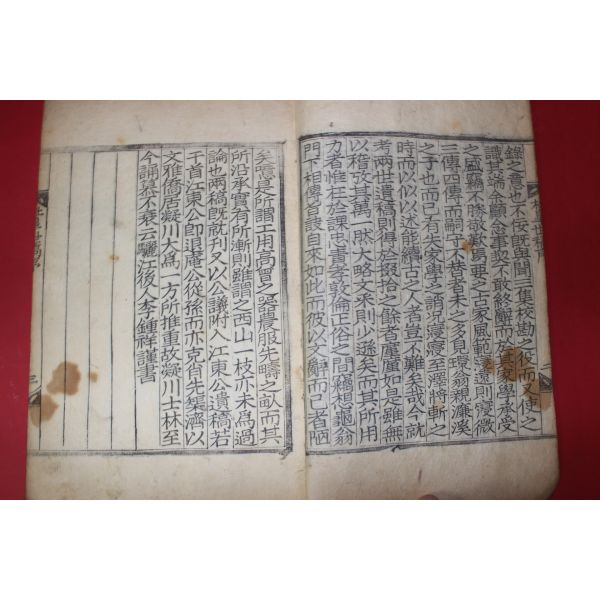 錄之意也不佞旣與聞三集校勘之役而又使之
識其端余顧念事契不敢終辭而於其家學承受
之盛竊不勝歎易要之古家風範遠則寖微
三傳四傳而嗣守不替者未之多見環翁親濂溪
之子也而已有失家學之誚況寖寖至澤將斬之
時而以似以述能續古之人者豈不難矣哉今就
考兩世遺稿則得於掇拾之餘者廑廑如是雖無
以稽攷其萬一然大略文釆則少遜矣而其所用
力者惟在於課忠責孝敦倫正俗之間竊想龜翁
門下相傳旨訣自來如此而彼以文辭而已者陋
矣噫是所謂工用高曾之䂓農服先疇之畝而其
所沿承實有所漸則雖謂之西山一枝亦未爲過
論也兩稿旣就刊又以公議附入江東公遺稿若
干首江東公卽退庵公從孫而亦克肖先榘濟以
文雅僑居凝川大爲一方所推重故凝川士林至
今誦慕不衰云驪江後人李鍾祥謹書
三